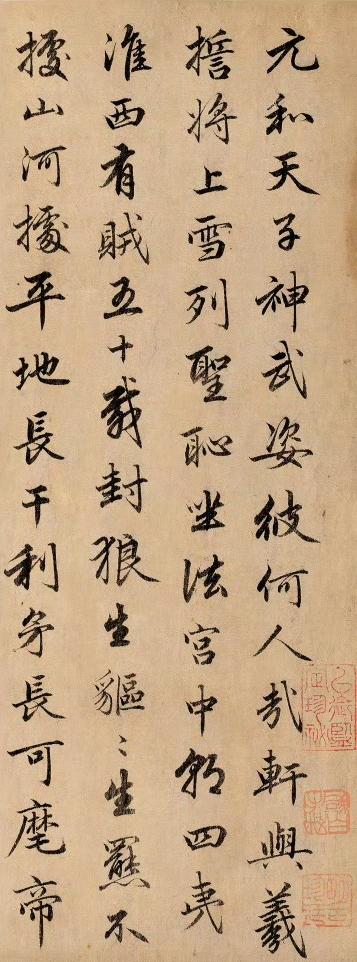 元和天子神武姿彼何人哉軒與羲
誓將上雪列聖恥坐法宮中朝四夷
淮西有賊五十載封狼生貙〻生羆不
據山河據平地長干利矛長可麾帝